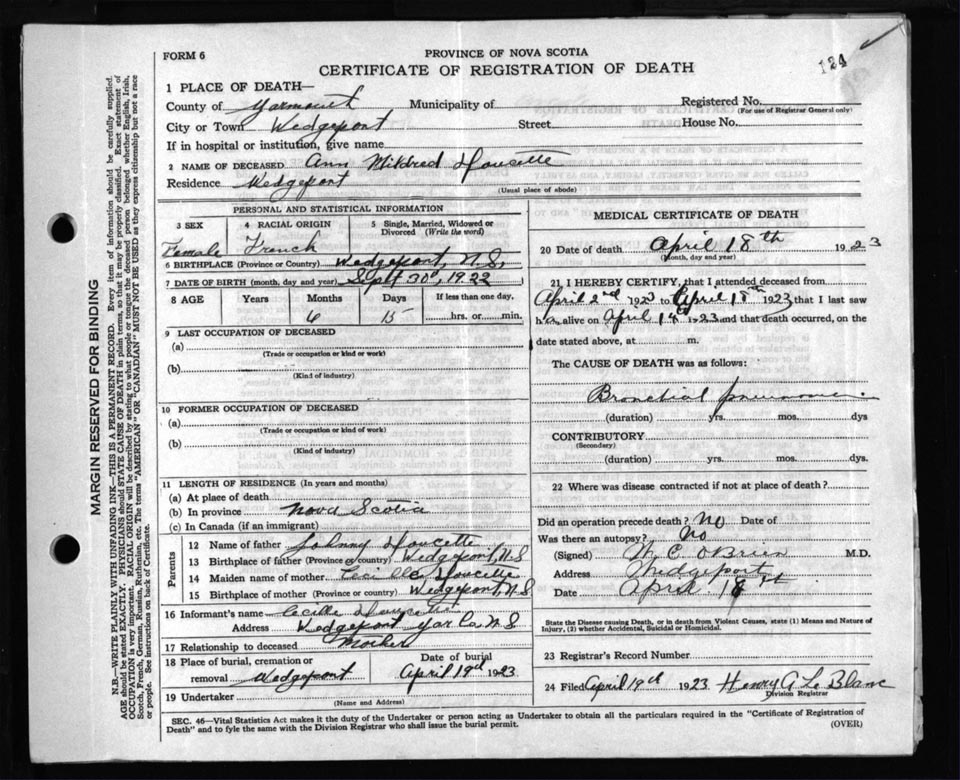 FORM 6
PROVINCE OF NOVA SCOTIA
124
CERTIFICATE OF REGISTRATION OF DEATH
1 PLACE OF DEATH—
County of Yarmouth Municipality of Registered No.
(For use of Registrar General only)
City or Town Wedgeport Street House No.
If in hospital or institution, give name
2 NAME OF DECEASED Ann Mildred Doucette
Residence Wedgeport
(Usual place of abode)
PERSONAL AND STATISTICAL INFORMATION
3 SEX 4 RACIAL ORIGIN 5 Single, Married, Widowed or Divorced (Write the word)
Female French
6 BIRTHPLACE (Province or Country) Wedgeport, N.S.
7 DATE OF BIRTH (month, day and year) Sept 30, 1922
8 AGE Years Months Days If less than one day,
6 15 hrs. or min.
9 LAST OCCUPATION OF DECEASED
(a)
(Trade or occupation or kind or work)
(b)
(Kind of industry)
10 FORMER OCCUPATION OF DECEASED
(a)
(Trade or occupation or kind of work)
(b)
(Kind of industry)
11 LENGTH OF RESIDENCE (In years and months)
(a) At place of death
(b) In province Nova Scotia
(c) In Canada (if an immigrant)
Parents
12 Name of father Johnny Doucette
13 Birthplace of father (Province or country) Wedgeport, N.S
14 Maiden name of mother Doucette
15 Birthplace of mother (Province or country) Wedgeport, N.S
16 Informant's name Cecille Doucette
Address Wedgeport Yar Co. N S
17 Relationship to deceased Mother
18 Place of burial, cremation or removal Wedgeport
Date of burial
April 19th 1923
19 Undertaker
(Name and Address)
MEDICAL CERTIFICATE OF DEATH
20 Date of death April 18th 1923
(Month, day and year)
21 I HEREBY CERTIFY, that I attended deceased from
April 2nd 192 to April 18th 1923 that I last saw
alive on April 1923 and that death occurred, on the
date stated above, at m.
The CAUSE OF DEATH was as follows:
Bronchial pneumonia
(duration) yrs. mos. dys
CONTRIBUTORY
(Secondary)
(duration) yrs. mos. dys
22 Where was disease contracted if not at place of death?
Did an operation precede death? No Date of
Was there an autopsy? No
(Signed) C O'Brien M.D.
Address Wedgeport
Date April 18
State the Disease causing Death, or in death from Violent Causes, state (1) Means and Nature of
Injury, (2) whether Accidental, Suicidal or Homicidal.
23 Registrar's Record Number
24 Filed April 19th 1923 Henry A Le Blanc
Division Registrar
SEC. 46—Vital Statistics Act makes it the duty of the Undertaker or person acting as Undertaker to obtain all the particulars required in the "Certificate of Registration of
Death" and to fyle the same with the Division Registrar who shall issue the burial permit.
(OVER)
MARGIN RESERVED FOR BINDING
N.B.—WRITE PLAINLY WITH UNFADING INK—THIS IS A PERMANENT RECORD. Every item of information should be carefully supplied.
AGE should be stated EXACTLY. PHYSICIANS should STATE CAUSE OF DEATH in plain terms, so that it may be properly classified. Exact statement of
OCCUPATION is very important. RACIAL ORIGIN will be described by stating to what people or tongue the deceased person belonged whether English, Irish,
Scotch, French, German, Russian, Ruthenian, etc. The terms "AMERICAN" OR "CANADIAN" MUST NOT BE USED as they express citizenship but not a race
or people. See instructions on back of Certificate.